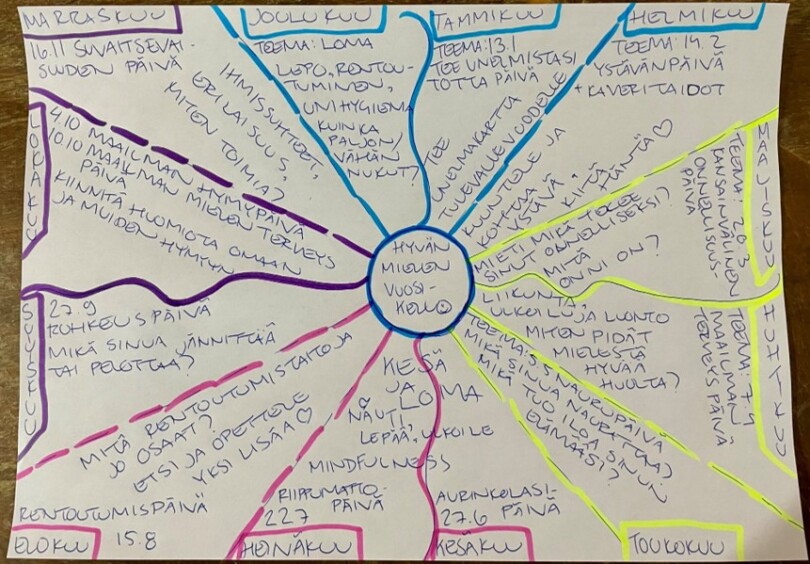 HYVÄN
MIELEN
VUOSI-
KELLO
TAMMIKUU
TEEMA: 13.1
TEE UNELMISTASI
TOTTA PÄIVÄ
TEE
UNELMAKARTTA
TULEVALLE VUODELLE
HELMIKUU
TEEMA: 14.2
YSTÄVÄNPÄIVÄ
+ KAVERITAIDOT
KUUNTELE JA
KOHTAA
YSTÄVÄ.
KIITÄ
HÄNTÄ ♡
MAALISKUU
TEEMA: 20.3
KANSAINVÄLINEN
ONNELLISUUS-
PÄIVÄ
MIETI MIKÄ TEKEE
SINUT ONNELLISEKSI?
MITÄ
ONNI ON?
HUHTIKUU
TEEMA: 7.4
MAAILMAN
TERVEYS PÄIVÄ
LIIKUNTA,
ULKOILU JA LUONTO
MITEN PIDÄT
MIELESTÄ
HYVÄÄ
HUOLTA?
TOUKOKUU
TEEMA: 5.5 NAURUPÄIVÄ
MIKÄ SINUA NAURATTAA?
MIKÄ TUO ILOA SINUN
ELÄMÄÄSI?
KESÄKUU
AURINKOLASI-
27.6 PÄIVÄ
KESÄ
JA
LOMA
NAUTI,
LEPÄÄ, ULKOILE
MINDFULNESS
HEINÄKUU
RIIPPUMATTO-
22.7 PÄIVÄ
ELOKUU
RENTOUTUMISPÄIVÄ
15.8
MITÄ RENTOUTUMISTAITOJA
JO OSAAT?
ETSI JA OPETTELE
YKSI LISÄÄ ♡
SYYSKUU
27.9
ROHKEUSPÄIVÄ
MIKÄ SINUA JÄNNITTÄÄ
TAI PELOTTAA?
LOKAKUU
4.10 MAAILMAN HYMYPÄIVÄ
10.10 MAAILMAN MIELENTERVEYS
PÄIVÄ
KIINNITÄ HUOMIOTA OMAAN
JA MUIDEN HYMYYN
MARRASKUU
16.11 SUVAITSEVAI-
SUUDEN PÄIVÄ
IHMISSUHTEET,
ERILAISUUS,
MITEN TOIMIA?
JOULUKUU
TEEMA: LOMA
LEPO, RENTOU-
TUMINEN,
UNIHYGIENIA
KUINKA
PALJON/
VÄHÄN
NUKUT?